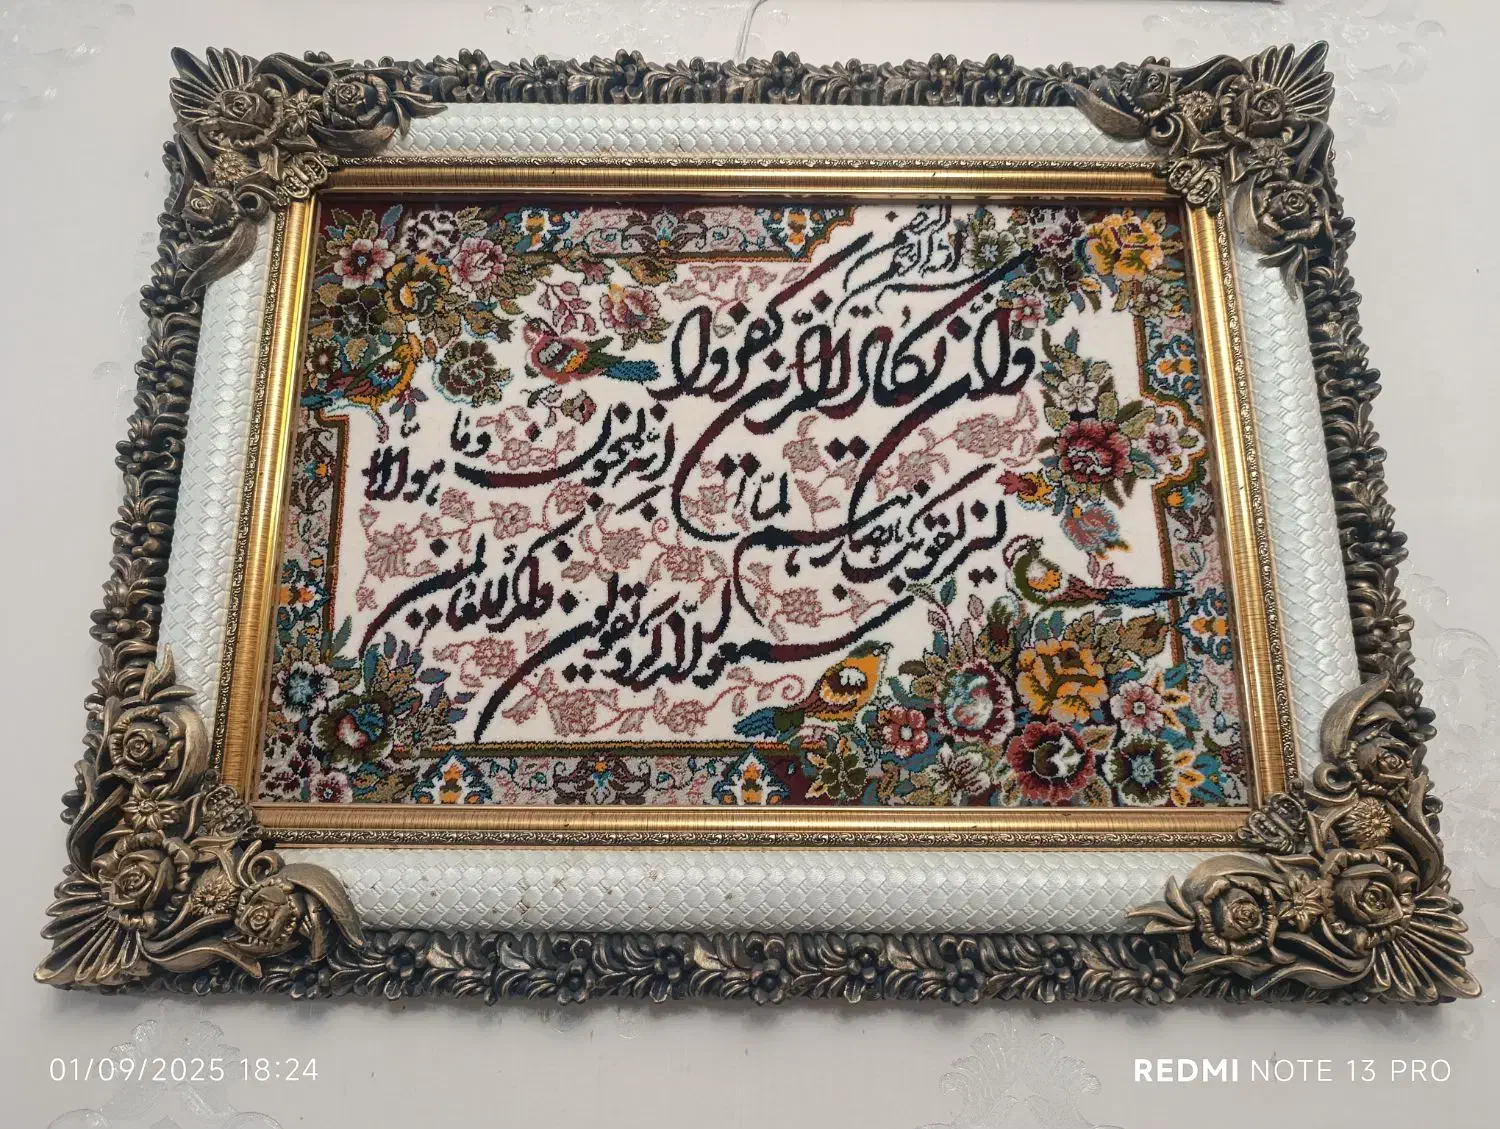 بسم الله الرحمن الرحیم
وان یکاد الذین کفروا
لیزلقونک بابصارهم لما
سمعوا الذکر و یقولون
انه لمجنون وما هو الا
ذکر للعالمین
01/09/2025 18:24
REDMI NOTE 13 PRO